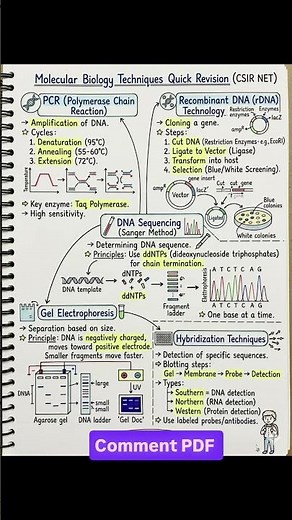 Molecular Biology Techniques Quick Revision (CSIR NET)
PCR (Polymerase Chain
Reaction)
→ Amplification of DNA.
☆ Cycles:
1. Denaturation (95°C)
2. Annealing (55-60°C)
3. Extension (72°C).
Temperature
→ Key enzyme: Taq Polymerase.
→ High sensitivity.
Recombinant DNA (rDNA)
Technology
Restriction enzymes
Enzymes
lacZ
ampR
→ Cloning a gene.
☆ Steps:
1. Cut DNA (Restriction Enzymes - e.g., EcoRI)
2. Ligate to Vector (Ligase)
3. Transform into host
4. Selection (Blue/White Screening).
gene insert
ampR
lacZ
Cut
cut gene
Vector
Ligated
Blue
colonies
White colonies
DNA Sequencing
(Sanger Method)
→ Determining DNA sequence.
☆ Principles: Use ddNTPs (dideoxynucleotide triphosphates)
for chain termination.
DNA template
dNTPs
+
ddNTPs
Fragment
ladder
Electrophoresis
A T C T C A G
☆ One base at a time.
Gel Electrophoresis
→ Separation based on size.
☆ Principle: DNA is negatively charged,
moves toward positive electrode.
Smaller fragments move faster.
large
small
small
Agarose gel
DNA ladder
UV
'Gel Doc'
Hybridization Techniques
→ Detection of specific sequences.
→ Blotting steps:
Gel → Membrane → Probe → Detection
→ Types:
→ Southern = DNA detection
→ Northern (RNA detection)
→ Western (Protein detection)
☆ Use labeled probes/antibodies.
Comment PDF